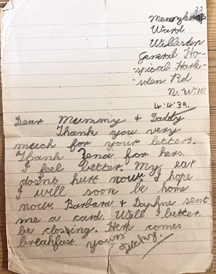 Ward
Willesden
General Ho-
spical Harle-
sden Rd
N.W.10.
4.4.39.
Dear Mummy & Daddy
Thank you very
much for your letters.
Thank Zena for hers.
I feel better. My ear
doesn't hurt now. I hope
I will soon be home
now. Barbara & Daphne sent
me a card. Well I better
be closing. Here comes
breakfast. yours